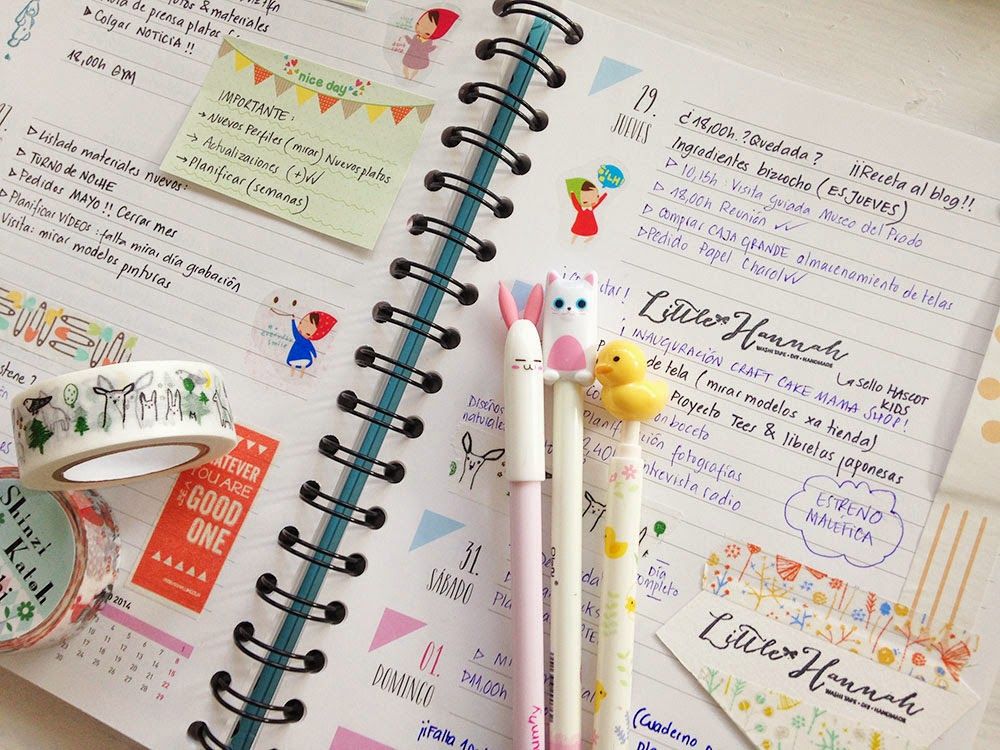 & materiales
de prensa platos
▷ Colgar NOTICIA !!
18,00h GYM
nice day
IMPORTANTE:
→ Nuevos Perfiles (mirar) Nuevos platos
→ Actualizaciones (+)
→ Planificar (semanas)
▷ Listado materiales nuevos:
▷ TURNO DE NOCHE
▷ Pedidos MAYO !! Cerrar mes
▷ Planificar VÍDEOS : falta mirar día grabación
Visita: mirar modelos pinturas
WHATEVER
YOU ARE
BE A
GOOD
ONE
Shinzi
Katoh
2014
29.
JUEVES
¿18,00h. ? Quedada ?
¡¡Receta al blog!!
Ingredientes bizcocho (ES JUEVES)
▷ 10,15h : Visita guiada Museo del Prado
▷ 18,00h Reunión
▷ Comprar CAJA GRANDE almacenamiento de telas
▷ Pedido Papel Charol
Little Hannah
WASHI TAPE • DIY • HANDMADE
↳ sello HASCOT
KIDS
¡ INAUGURACIÓN CRAFT CAKE MAMA SHOP!
de tela (mirar modelos xa tienda)
Proyecto Tees & libretas japonesas
boceto
fotografías
entrevista radio
ESTRENO
MALEFICA
Diseños
naturales
Día
completo
31.
SÁBADO
01.
DOMINGO
11.00h
¡¡Falta
(Cuaderno
Little Hannah
WASHI TAPE • DIY • HANDMADE